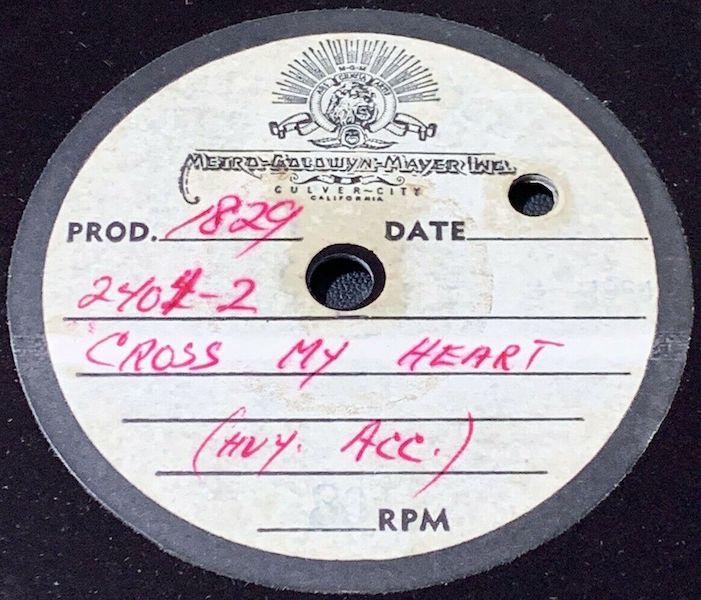 M-G-M
ARS GRATIA ARTIS
METRO-GOLDWYN-MAYER INC.
CULVER-CITY
CALIFORNIA
PROD. 1829 DATE
2401-2
CROSS MY HEART
(HVY. ACC.)
RPM